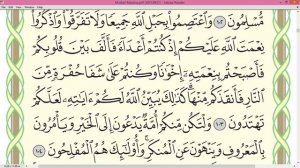 مُّسْلِمُونَ ١٠٢ وَٱعْتَصِمُوا۟ بِحَبْلِ ٱللَّهِ جَمِيعًا وَلَا تَفَرَّقُوا۟ وَٱذْكُرُوا۟
نِعْمَتَ ٱللَّهِ عَلَيْكُمْ إِذْ كُنتُمْ أَعْدَآءً فَأَلَّفَ بَيْنَ قُلُوبِكُمْ
فَأَصْبَحْتُم بِنِعْمَتِهِۦٓ إِخْوَٰنًا وَكُنتُمْ عَلَىٰ شَفَا حُفْرَةٍ مِّنَ
ٱلنَّارِ فَأَنقَذَكُم مِّنْهَا كَذَٰلِكَ يُبَيِّنُ ٱللَّهُ لَكُمْ ءَايَٰتِهِۦ لَعَلَّكُمْ
تَهْتَدُونَ ١٠٣ وَلْتَكُن مِّنكُمْ أُمَّةٌ يَدْعُونَ إِلَى ٱلْخَيْرِ وَيَأْمُرُونَ
بِٱلْمَعْرُوفِ وَيَنْهَوْنَ عَنِ ٱلْمُنكَرِ وَأُو۟لَٰٓئِكَ هُمُ ٱلْمُفْلِحُونَ ١٠٤